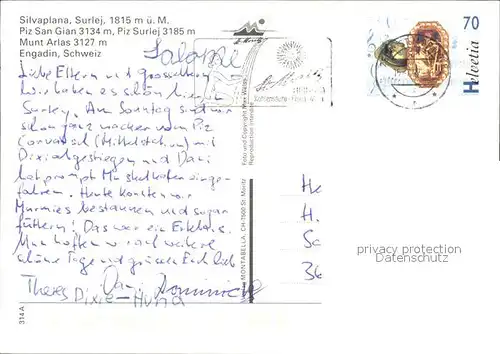 Silvaplana, Surlej, 1815 m ü. M.
Piz San Gian 3134 m, Piz Surlej 3185 m
Munt Arlas 3127 m
Engadin, Schweiz
70
Helvetia
St. Moritz
Liebe Eltern und Grosseltern
Wir haben es schön hier in
Surley. Am Sonntag sind wir
schon ganz wacker vom Piz
Corvatsch (Mittelstation) mit
Dixie abgestiegen und Dani
hat prompt Muskelkater einge-
fahren. Heute konnten wir
Murmies bestaunen und sogar
füttern! Das war ein Erlebnis.
Nun hoffen wir auf weitere
schöne Tage und grüssen Euch lieb
Theres Dani Dominic
Dixie-Hund
Foto und Copyright Max Weiss
Reproduction interdite
MONTABELLA, CH-7500 St. Moritz
314 A
He
H.
Sc
36
privacy protection
Datenschutz